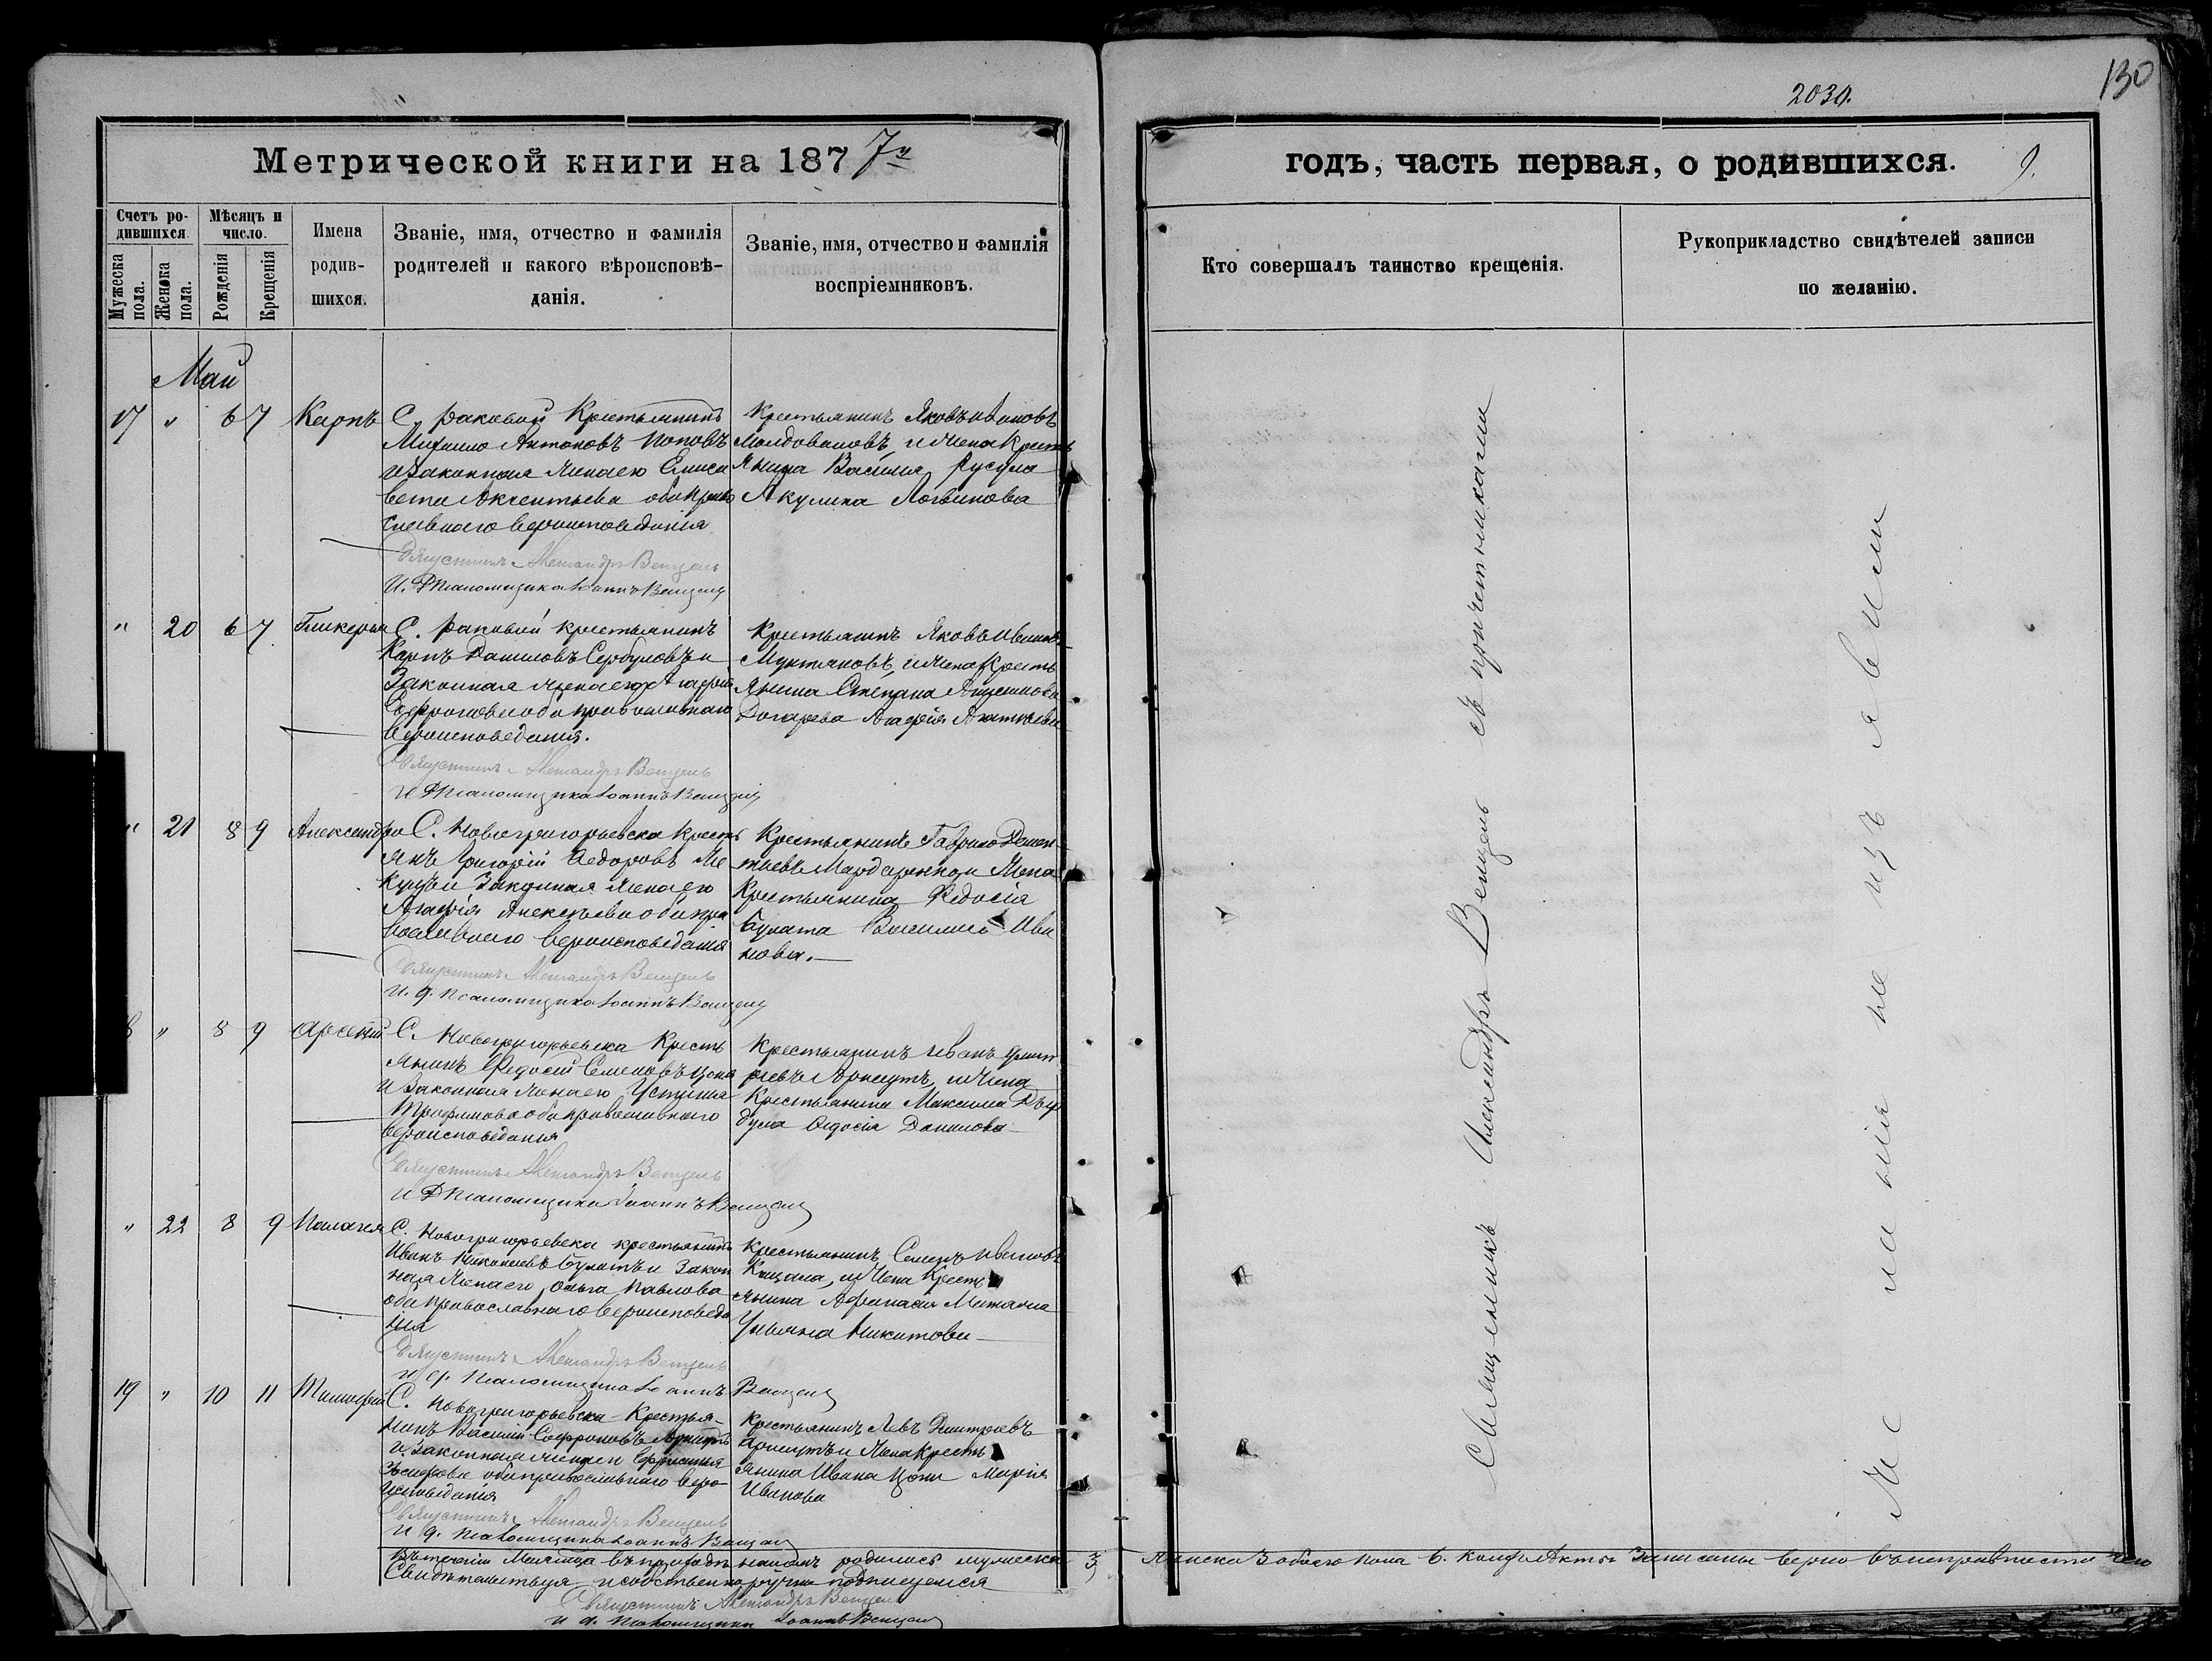 130
2030.
Метрической книги на 1877й
годъ, часть первая, о родившихся.
9.
Счетъ ро-
дившихся
Мужеска пола.
Женска пола.
Мѣсяцъ и
число.
Рожденія
Крещенія
Имена
родив-
шихся.
Званіе, имя, отчество и фамилія
родителей и какого вѣроисповѣ-
данія.
Званіе, имя, отчество и фамилія
воспріемниковъ.
Кто совершалъ таинство крещенія.
Рукоприкладство свидѣтелей записи
по желанію.
Май
17 " 6 7 Карпъ
С. Раковой Крестьянинъ
Михаило Антоновъ Поповъ
и законная жена его Елиса
вета Акентьева оба право
славнаго вероисповеданія
Священникъ Александръ Венцель
И. д. Псаломщика Іоаннъ Венцель
Крестьянинъ Яковъ Ивановъ
Молдовановъ и жена Кресть
янина Василия Русула
Акулина Логвинова
" 20 6 7 Гликерия
С. Раковой крестьянинъ
Карпъ Даниловъ Сербуловъ и
Законная жена его Агафия
Софронова оба православнаго
вероисповедания.
Священникъ Александръ Венцель
И д Псаломщика Іоаннъ Венцель
Крестьянинъ Яковъ Ивановъ
Мунтяновъ и жена Кресть
янина Степана
Догарева Агафія
" 21 8 9 Александра
С. Новогригорьевска Кресть
янъ Григорій Федоровъ
и Законная жена его
Агафія Алексѣева оба пра
вославнаго вероисповедания
Священникъ Александръ Венцель
И. д. Псаломщика Іоаннъ Венцель
Крестьянинъ Гаврило Демен
тьевъ и жена
Крестьянина Федосія
Булата Василиса Ива
нова.
8 " 8 9 Арсений
С. Новогригорьевска Кресть
янинъ Федосий Семеновъ Цона
и Законная жена его Устиния
Трофимова оба православнаго
вероисповедания
Священникъ Александръ Венцель
И д Псаломщика Іоаннъ Венцель
Крестьянинъ Иванъ Дмит
риевъ Арнаутъ и жена
Крестьянина Максима
Федосія Данилова
" 22 8 9 Палагея
С. Новогригорьевска крестьянинъ
Иванъ Булатъ и Закон
ная жена его Ольга Павлова
оба православнаго вероисповеда
ния
Священникъ Александръ Венцель
И д. Псаломщика Іоаннъ Венцель
Крестьянинъ Семенъ Ивановъ
и жена Кресть
янина Афанасия
Ульяна Никитова
19 " 10 11 Тимофей
С. Новогригорьевска Крестья-
нинъ Василий Софроновъ Арнаутъ
и законная жена его
оба православнаго веро-
исповеданія
Священникъ Александръ Венцель
И д. Псаломщика Іоаннъ Венцель
Крестьянинъ Левъ Дмитриевъ
Арнаутъ и жена Кресть
янина Ивана Цоны Мария
Иванова
Священникъ Александръ Венцель съ причетниками
Желанія не изъявили
Въ течении Месяца въ приходѣ нашемъ родилось мужеска 3
женска 3 обоего пола 6. Акты записаны верно въ исправности чего
Свидѣтельствуя и собственноручно подписуемся
Священникъ Александръ Венцель
И д. Псаломщика Іоаннъ Венцель